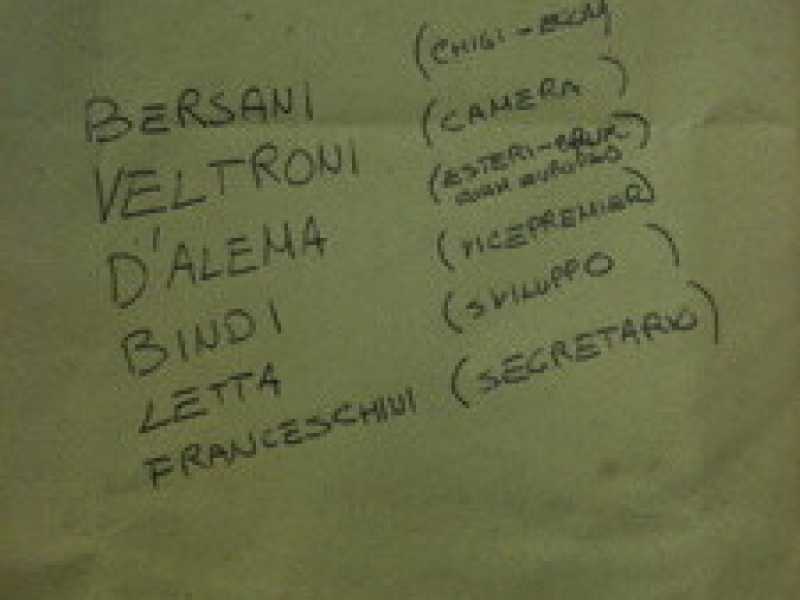 BERSANI (CHIGI -
VELTRONI (CAMERA)
D'ALEMA (ESTERI -
BINDI (VICEPREMIER)
LETTA (SVILUPPO)
FRANCESCHINI (SEGRETARIO)